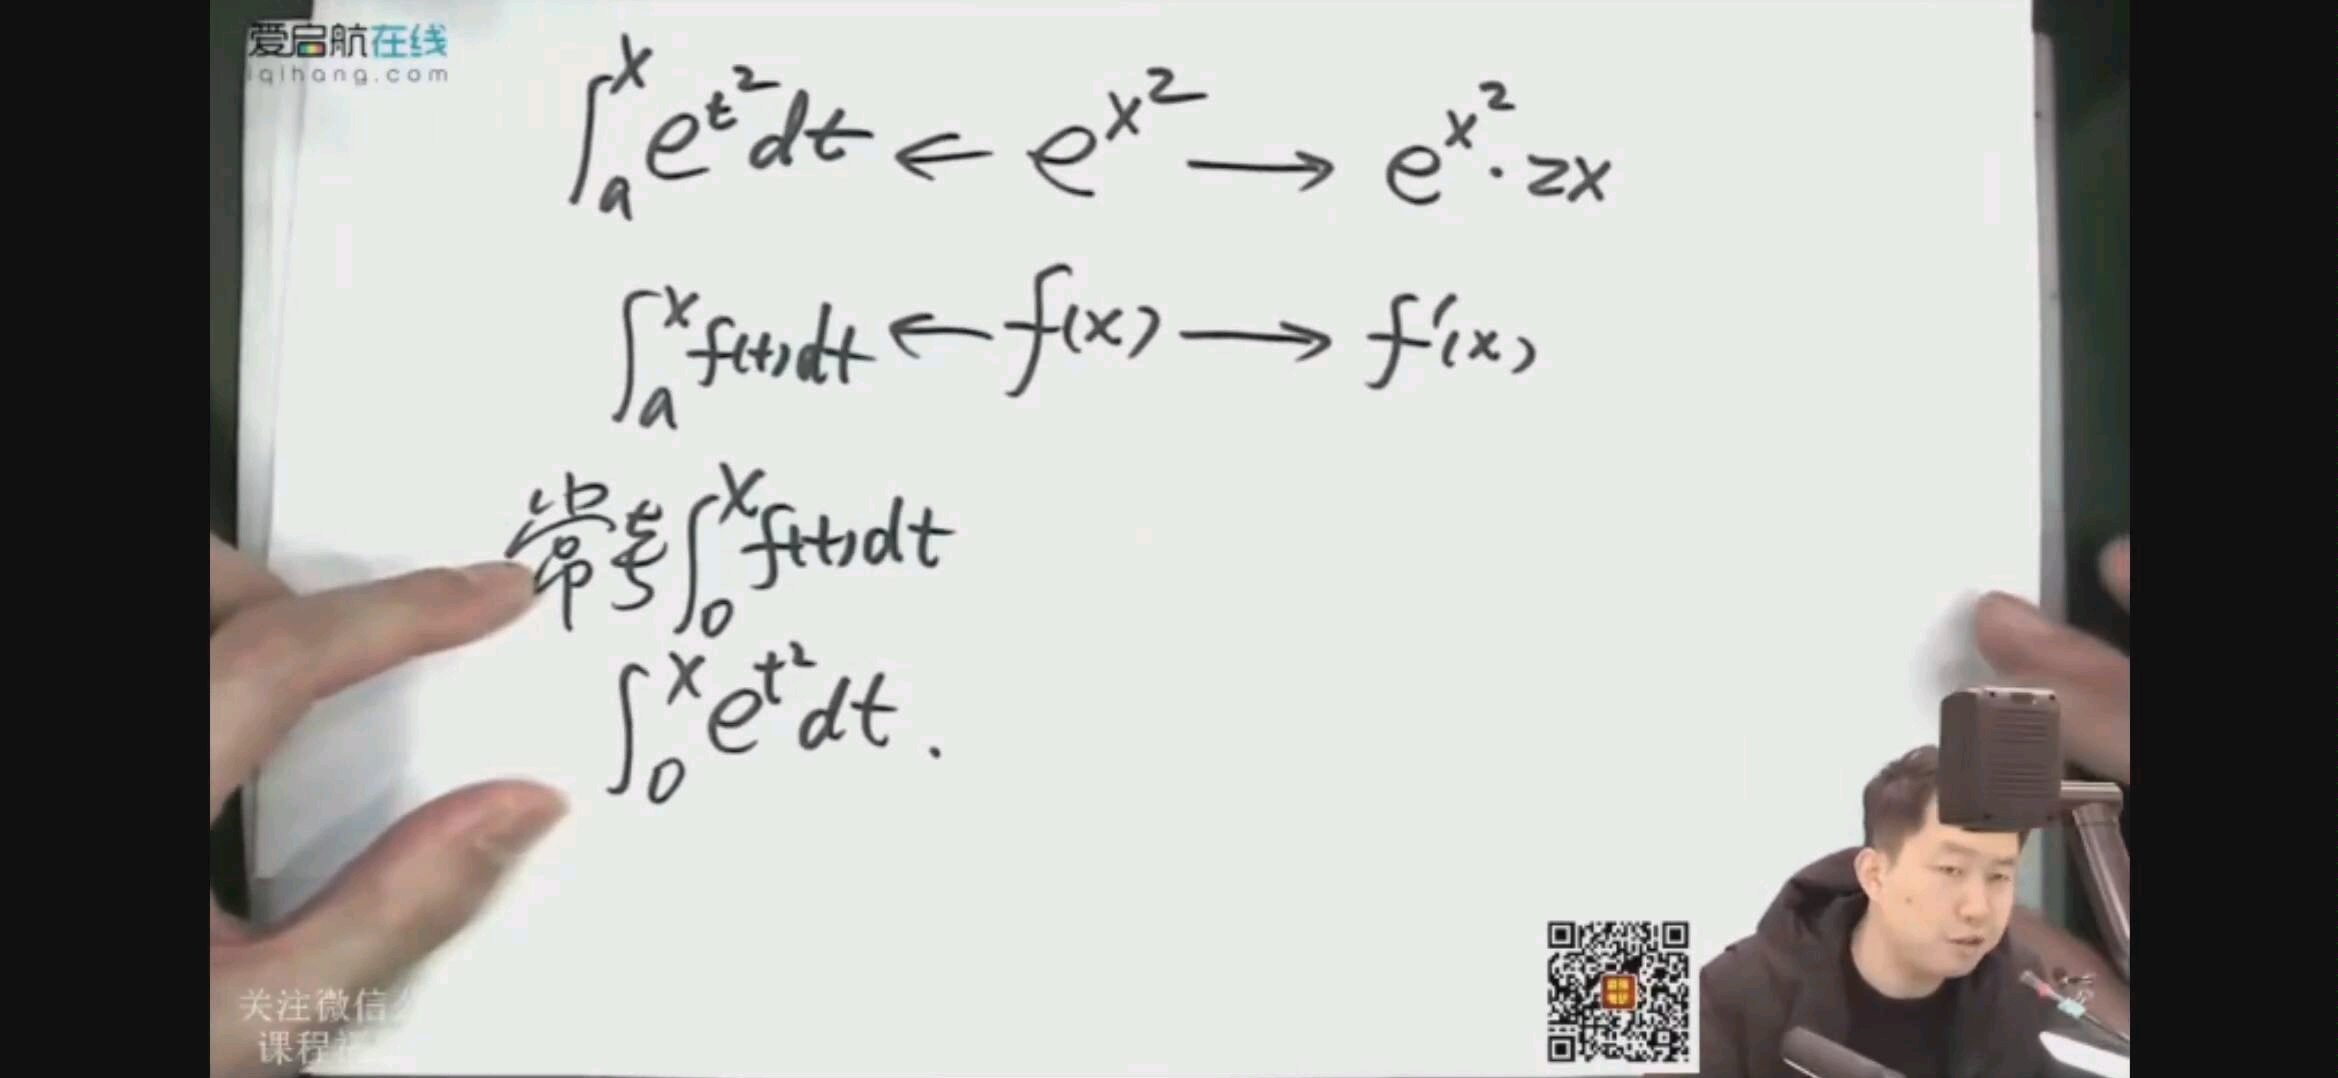 爱启航在线
iqihang.com
∫ₐˣ e^{t²}dt ← e^{x²} → e^{x²}·2x
∫ₐˣ f(t)dt ← f(x) → f′(x)
常考 ∫₀ˣ f(t)dt
∫₀ˣ e^{t²}dt.
关注微信
课程